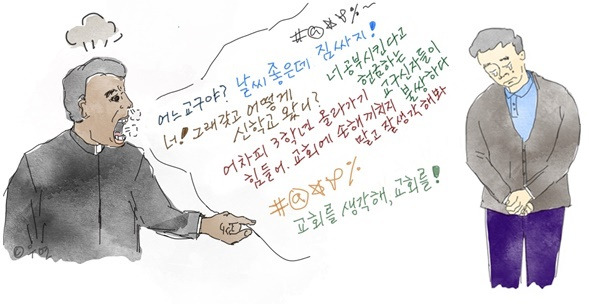 #@✡४%~
어느교구야? 날씨 좋은데 짐싸지!
너! 그래갖고 어떻게
신학교 왔니?
너 공부시킨다고
헌금하는
교구신자들이
불쌍하다
어차피 3학년 올라가기
힘들어. 교회에 손해끼치지
말고 잘생각해봐
#@✡४%
교회를 생각해, 교회를!